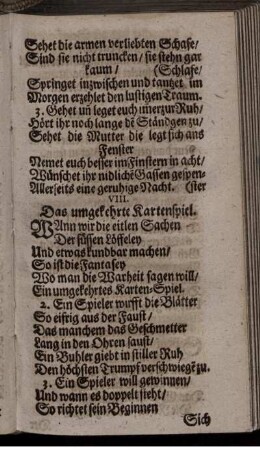 Sehet die armen verliebten Schafe/
Sind sie nicht truncken/ sie stehn gar
kaum/ (Schlafe/
Springet inzwischen und tantzet im
Morgen erzehlet den lustigen Traum.
3. Gehet uñ leget euch imer zur Ruh/
Hört ihr noch lange dẽ Ständgen zu/
Sehet die Mutter die legt sich ans
Fenster
Nemet euch besser im Finstern in acht/
Wünschet ihr nidlichẽ Gassen gespen-
Allerseits eine geruhige Nacht. (ster
VIII.
Das umgekehrte Kartenspiel.
Wann wir die eitlen Sachen
Der süssen Löffeley
Und etwas kundbar machen/
So ist die Fantasey
Wo man die Warheit sagen will/
Ein umgekehrtes Karten-Spiel.
2. Ein Spieler wurfft die Blätter
So eifrig aus der Faust/
Das manchem das Geschmetter
Lang in den Ohren saust/
Ein Buhler giebt in stiller Ruh
Den höchsten Trumpf verschwiegẽ zu.
3. Ein Spieler will gewinnen/
Und wann es doppelt sieht/
So richtet sein Beginnen
Sich